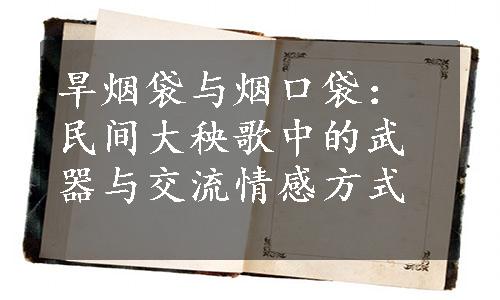 旱烟袋与烟口袋：
民间大秧歌中的武
器与交流情感方式